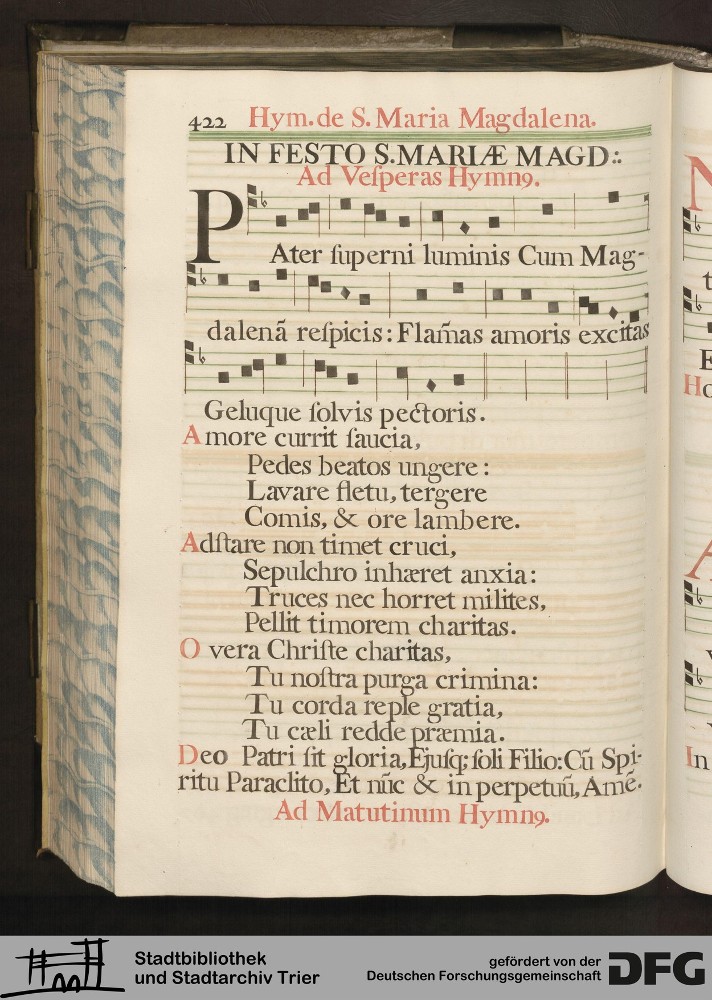 422 Hym. de S. Maria Magdalena.
IN FESTO S. MARIÆ MAGD:.
Ad Veſperas Hymnꝯ.
PAter ſuperni luminis Cum Mag-
dalenã reſpicis: Flam̃as amoris excitas
Geluque ſolvis pectoris.
Amore currit ſaucia,
Pedes beatos ungere:
Lavare fletu, tergere
Comis, & ore lambere.
Adſtare non timet cruci,
Sepulchro inhæret anxia:
Truces nec horret milites,
Pellit timorem charitas.
O vera Chriſte charitas,
Tu noſtra purga crimina:
Tu corda reple gratia,
Tu cæli redde præmia.
Deo Patri ſit gloria, Ejuſq; ſoli Filio: Cũ Spi-
ritu Paraclito, Et nũc & in perpetuũ, Amẽ.
Ad Matutinum Hymnꝯ.
Stadtbibliothek
und Stadtarchiv Trier
gefördert von der
Deutschen Forschungsgemeinschaft
DFG